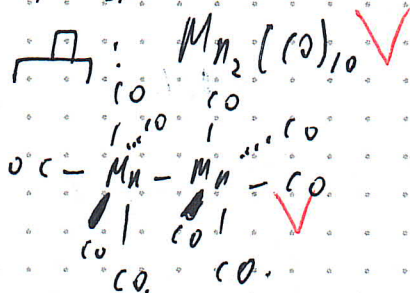 : Mn₂(CO)₁₀
CO CO
CO CO
OC - Mn - Mn - CO
CO CO
CO. CO.